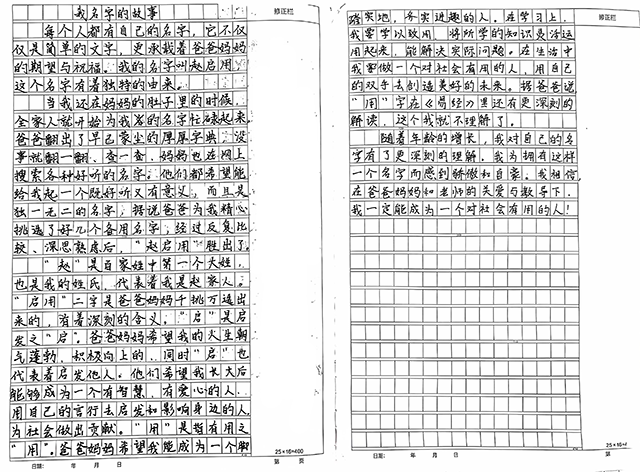 我名字的故事
修正栏
每个人都有自己的名字，它不仅
仅是简单的文字，更承载着爸爸妈妈
的期望与祝福。我的名字叫赵启用，
这个名字有着独特的由来。
当我还在妈妈的肚子里的时候，
全家人就开始为我的名字忙碌起来。
爸爸翻出了早已蒙尘的厚厚字典，没
事就翻一翻、查一查，妈妈也在网上
搜索各种好听的名字。他们都希望能
给我起一个既好听又有意义，而且是
独一无二的名字，据说爸爸为我精心
挑选了好几个备用名字，经过反复比
较、深思熟虑后，“赵启用”胜出了。
“赵”是百家姓中第一个大姓，
也是我的姓氏，代表着我是赵家人。
“启用”二字是爸爸妈妈千挑万选出
来的，有着深刻的含义。“启”是启
发之“启”。爸爸妈妈希望我的人生朝
气蓬勃、积极向上的，同时“启”也
代表着启发他人。他们希望我长大后
能够成为一个有智慧、有爱心的人，
用自己的言行去启发和影响身边的人，
为社会做出贡献。“用”是指有用之
“用”。爸爸妈妈希望我能成为一个脚
25×16=400
日期： 年 月 日 第 页
踏实地，务实进趣的人。在学习上，
我要学以致用，将所学的知识灵活运
用起来，能解决实际问题。在生活中
我要做一个对社会有用的人，用自己
的双手去创造美好的未来。据爸爸说
“用”字在《易经》里还有更深刻的
解读，这个我就不理解了。
随着年龄的增长，我对自己的名
字有了更深刻的理解。我为拥有这样
一个名字而感到骄傲和自豪。我相信
在爸爸妈妈和老师的关爱与教导下，
我一定能成为一个对社会有用的人！
修正栏
25×16=4
日期： 年 月 日 第